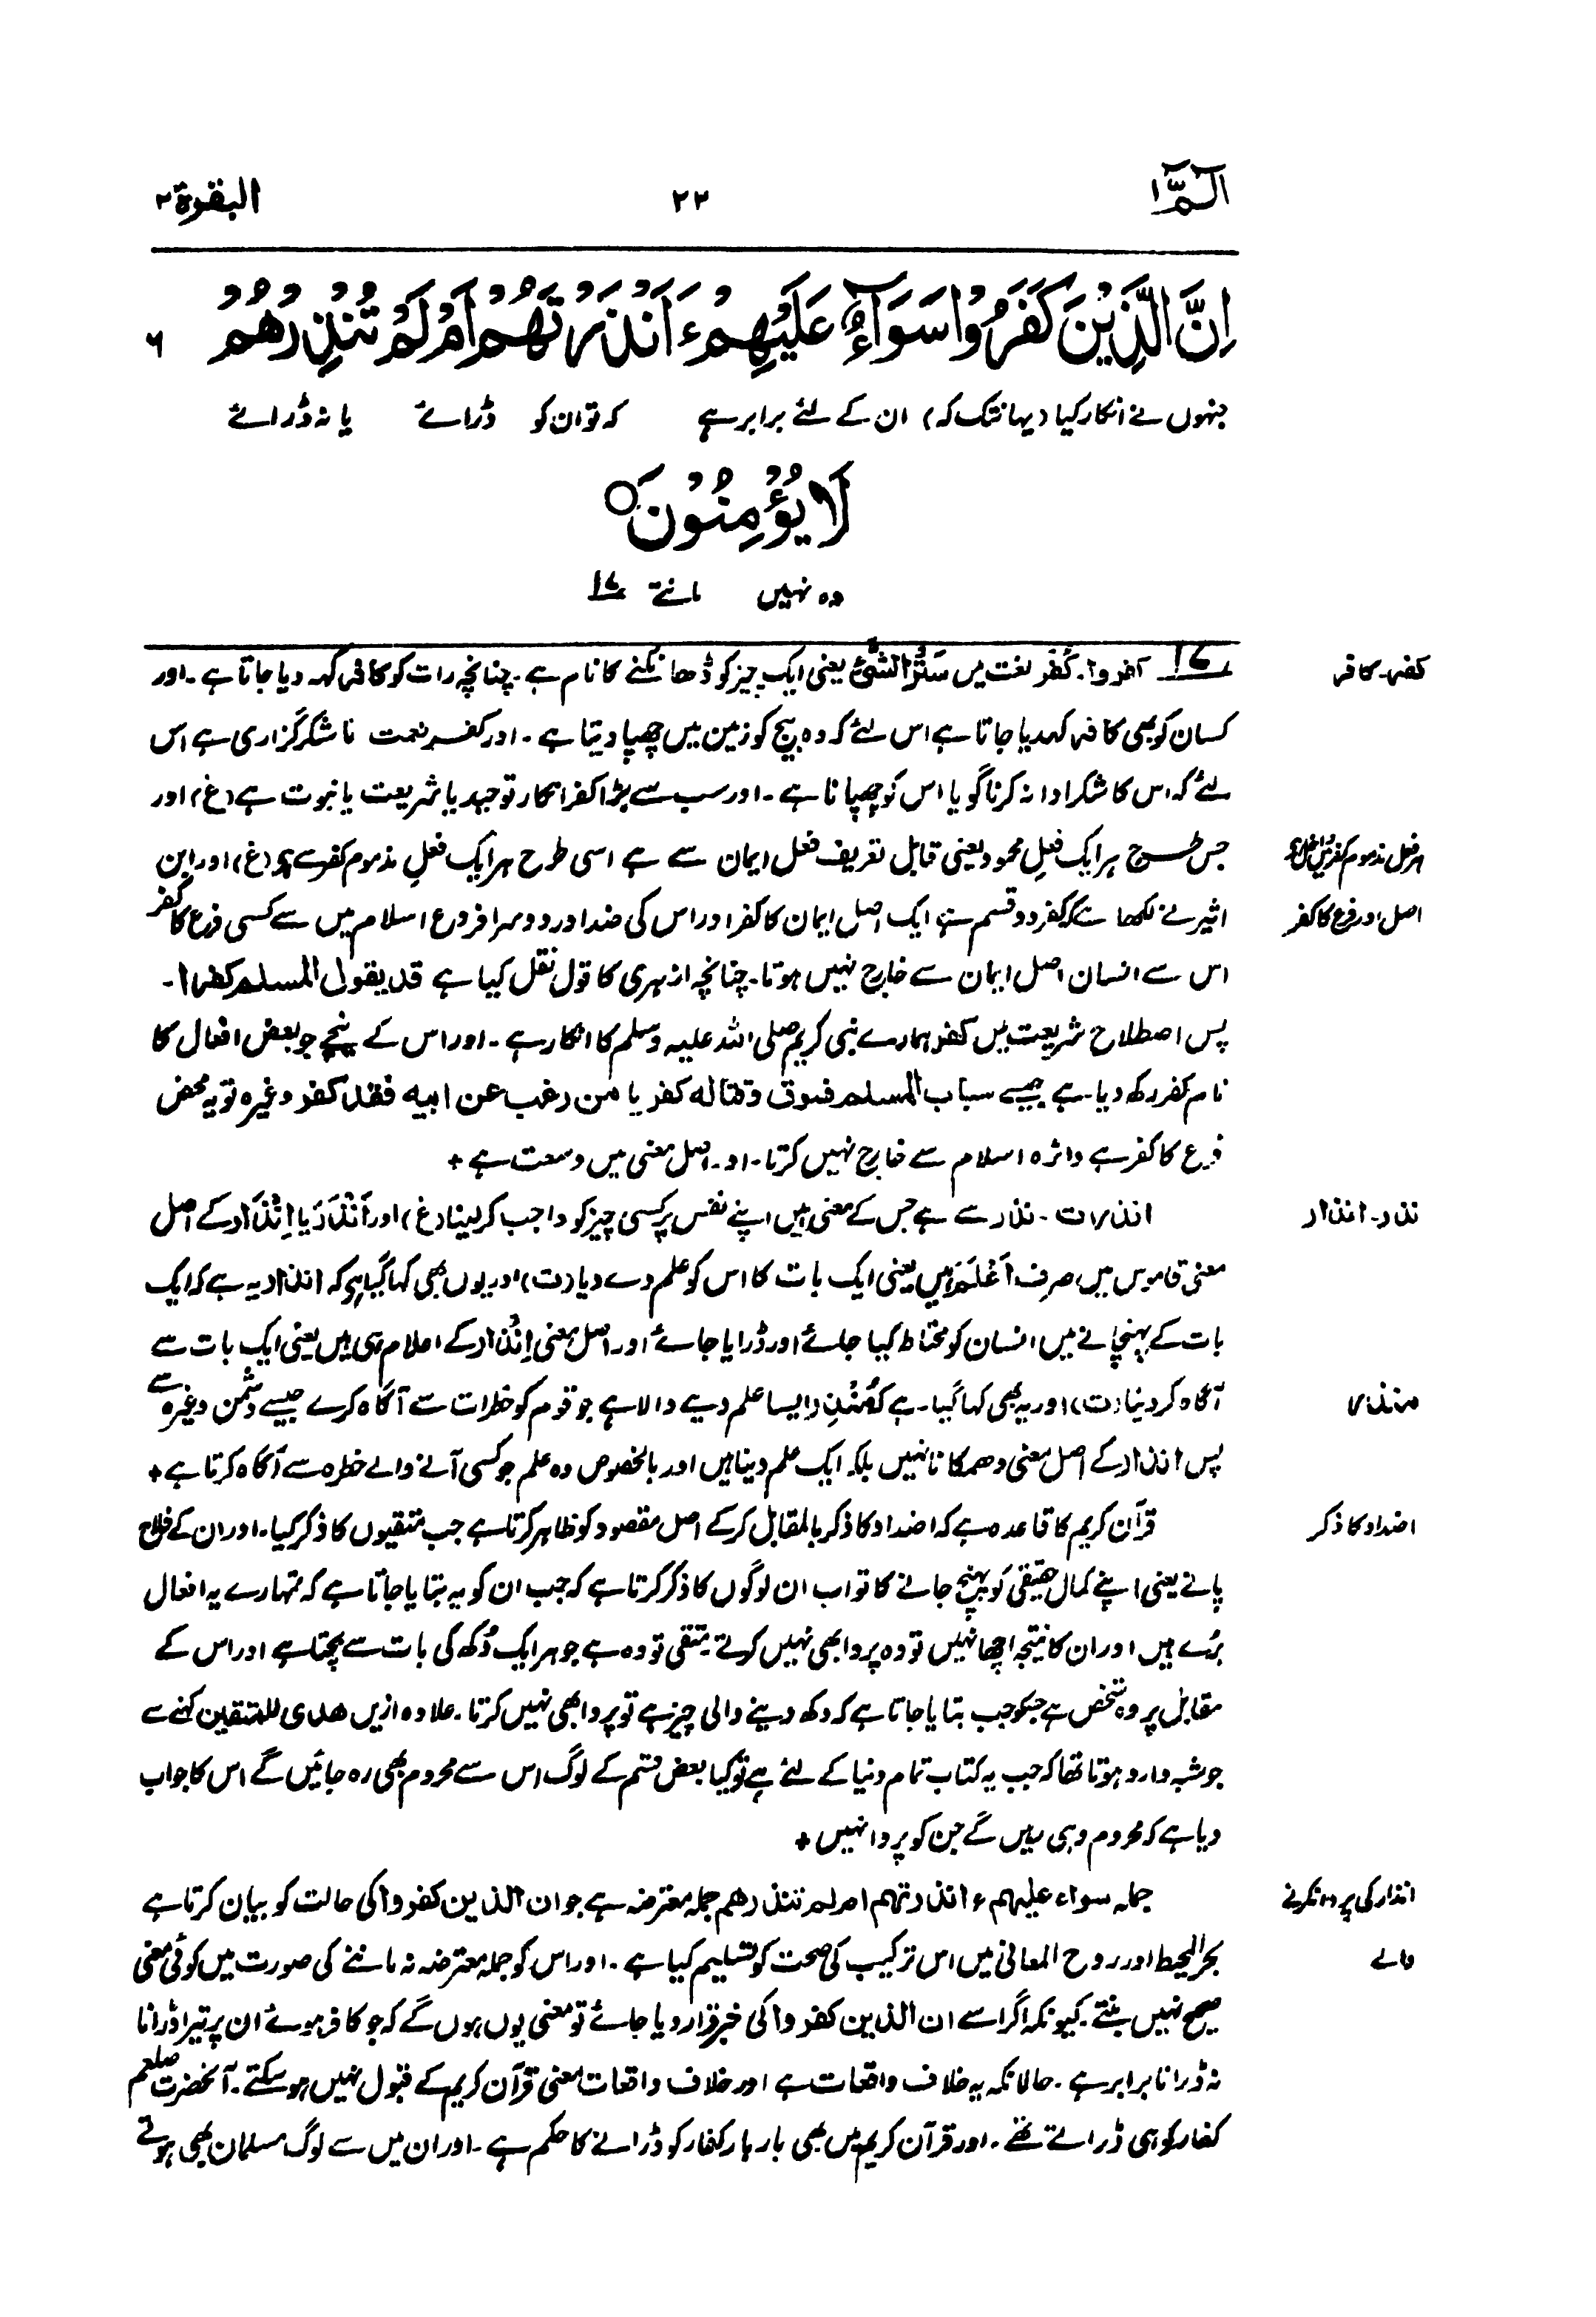 الٓمّٓ ۱
۲۲
البقرة ۲
اِنَّ الَّذِیْنَ کَفَرُوْا سَوَآءٌ عَلَیْهِمْ ءَاَنْذَرْتَهُمْ اَمْ لَمْ تُنْذِرْهُمْ ۶
جنہوں نے انکار کیا (یہانتک کہ) ان کے لئے برابر ہے کہ تو ان کو ڈرائے یا نہ ڈرائے
لَا یُؤْمِنُوْنَ ○
وہ نہیں مانتے ۱۶
کفر۔ کافر
۱۶ کفروا۔ کُفر لغت میں سَتْرُ الشَّیْءِ یعنی ایک چیز کو ڈھانکنے کا نام ہے۔ چنانچہ رات کو کافر کہہ دیا جاتا ہے۔ اور
کسان کو بھی کافر کہدیا جاتا ہے اس لئے کہ وہ بیج کو زمین میں چھپا دیتا ہے۔ اور کفر نعمت ناشکرگزاری ہے اس
لئے کہ اس کا شکر ادا نہ کرنا گویا اس کو چھپانا ہے۔ اور سب سے بڑا کفر انکار توحید یا شریعت یا نبوت ہے (غ) اور
ہر فعل مذموم کفر میں داخل ہے
جس طرح ہر ایک فعلِ محمود یعنی قابل تعریف فعل ایمان سے ہے اسی طرح ہر ایک فعلِ مذموم کفر سے ہے (غ) اور ابن
اصل اور فرع کا کفر
اثیر نے لکھا ہے کہ کفر دو قسم ہے ایک اصل ایمان کا کفر اور اس کی ضد اور دوسرا فروع اسلام میں سے کسی فرع کا کفر
اس سے انسان اصل ایمان سے خارج نہیں ہوتا۔ چنانچہ ازہری کا قول نقل کیا ہے قد یقول المسلم کفرا۔
پس اصطلاح شریعت میں کفر ہمارے نبی کریم صلی اللہ علیہ وسلم کا انکار ہے۔ اور اس کے نیچے جو بعض افعال کا
نام کفر رکھ دیا ہے جیسے سباب المسلم فسوق وقتاله کفر یا من رغب عن ابیه فقد کفر وغیرہ تو یہ محض
فرع کا کفر ہے دائرہ اسلام سے خارج نہیں کرتا۔ اور اصل معنی میں وسعت ہے +
نذر۔ انذار
انذرت۔ نذر سے ہے جس کے معنی ہیں اپنے نفس پر کسی چیز کو واجب کر لینا (غ) اور اَنْذَرَ یا اِنْذَار کے اصل
معنی قاموس میں صرف اَعْلَمَ ہیں یعنی ایک بات کا اس کو علم دے دیا (ت) اور یوں بھی کہا گیا ہے کہ انذار یہ ہے کہ ایک
بات کے پہنچانے میں انسان کو محتاط کیا جائے اور ڈرایا جائے اور اصل معنی اِنْذَار کے اعلام ہی ہیں یعنی ایک بات سے
منذر
آگاہ کر دینا (ت) اور یہ بھی کہا گیا ہے کہ مُنْذِر ایسا علم دینے والا ہے جو قوم کو خطرات سے آگاہ کرے جیسے دشمن وغیرہ سے
پس انذار کے اصل معنی دھمکانا نہیں بلکہ ایک علم دینا ہیں اور بالخصوص وہ علم جو کسی آنے والے خطرہ سے آگاہ کرتا ہے +
اضداد کا ذکر
قرآن کریم کا قاعدہ ہے کہ اضداد کا ذکر بالمقابل کر کے اصل مقصود کو ظاہر کرتا ہے جب متقیوں کا ذکر کیا۔ اور ان کے فلاح
پانے یعنی اپنے کمال حقیقی کو پہنچ جانے کا تو اب ان لوگوں کا ذکر کرتا ہے کہ جب ان کو یہ بتایا جاتا ہے کہ تمہارے یہ افعال
بُرے ہیں اور ان کا نتیجہ اچھا نہیں تو وہ پروا بھی نہیں کرتے۔ متقی تو وہ ہے جو ہر ایک دُکھ کی بات سے بچتا ہے اور اس کے
مقابل پر وہ شخص ہے جسکو جب بتایا جاتا ہے کہ دکھ دینے والی چیز ہے تو پروا بھی نہیں کرتا۔ علاوہ ازیں ھدی للمتقین کہنے سے
جو شبہ وارد ہوتا تھا کہ جب یہ کتاب تمام دنیا کے لئے ہے تو کیا بعض قسم کے لوگ اس سے محروم بھی رہ جائیں گے اس کا جواب
دیا ہے کہ محروم وہی رہیں گے جن کو پروا نہیں +
انذار کی پروا نکرنے
جملہ سواء علیهم ءانذرتهم ام لم تنذرهم جملہ معترضہ ہے جو ان الذین کفروا کی حالت کو بیان کرتا ہے
والے
بحر المحیط اور روح المعانی میں اس ترکیب کی صحت کو تسلیم کیا ہے۔ اور اس کو جملہ معترضہ نہ ماننے کی صورت میں کوئی معنی
صحیح نہیں بنتے۔ کیونکہ اگر اسے ان الذین کفروا کی خبر قرار دیا جائے تو معنی یوں ہوں گے کہ جو کافر ہوئے ان پر تیرا ڈرانا
نہ ڈرانا برابر ہے۔ حالانکہ یہ خلاف واقعات ہے اور خلاف واقعات معنی قرآن کریم کے قبول نہیں ہو سکتے۔ آنحضرت صلعم
کفار کو ہی ڈراتے تھے۔ اور قرآن کریم میں بھی بار بار کفار کو ڈرانے کا حکم ہے۔ اور ان میں سے لوگ مسلمان بھی ہوتے